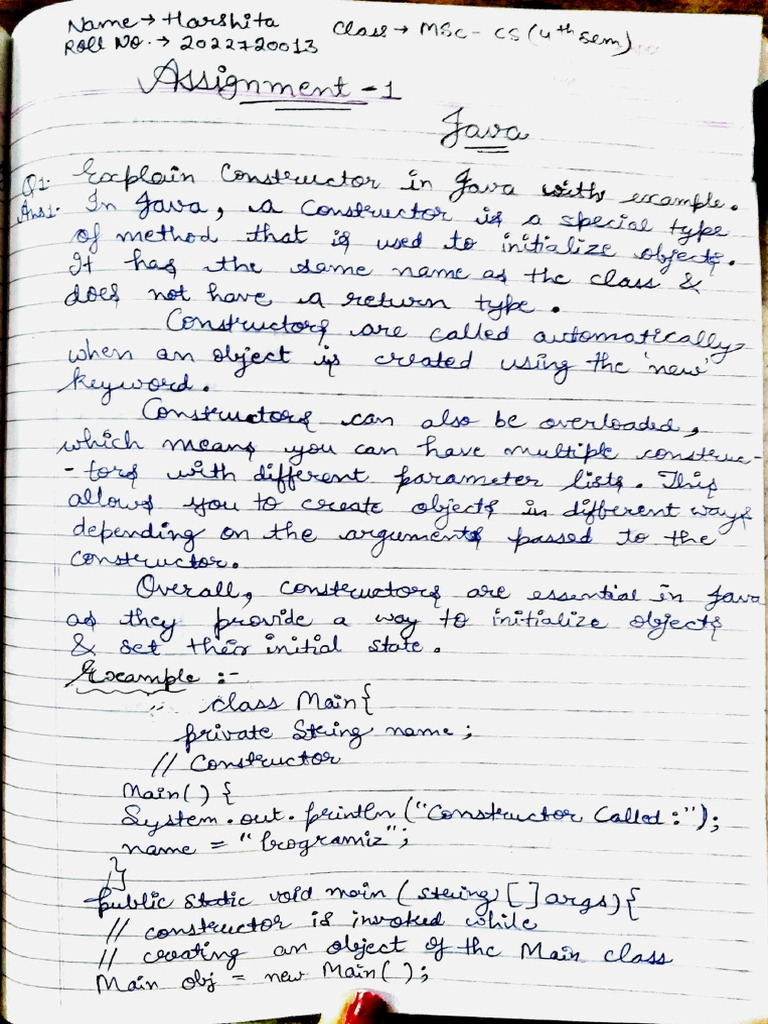 Name → Harshita
Class → MSc - CS (4th sem)
Roll No. → 2022720013
Assignment - 1
Java
Q1. Explain Constructor in Java with example.
Ans1. In Java, a constructor is a special type
of method that is used to initialize objects.
It has the same name as the class &
does not have a return type.
Constructors are called automatically
when an object is created using the 'new'
keyword.
Constructors can also be overloaded,
which means you can have multiple construc-
-tors with different parameter lists. This
allows you to create objects in different ways
depending on the arguments passed to the
constructor.
Overall, constructors are essential in Java
as they provide a way to initialize objects
& set their initial state.
Example :-
class Main {
private String name ;
// Constructor
Main() {
System.out.println ("Constructor Called :");
name = "Programiz";
}
public static void main (string [] args) {
// constructor is invoked while
// creating an object of the Main class
Main obj = new Main( );